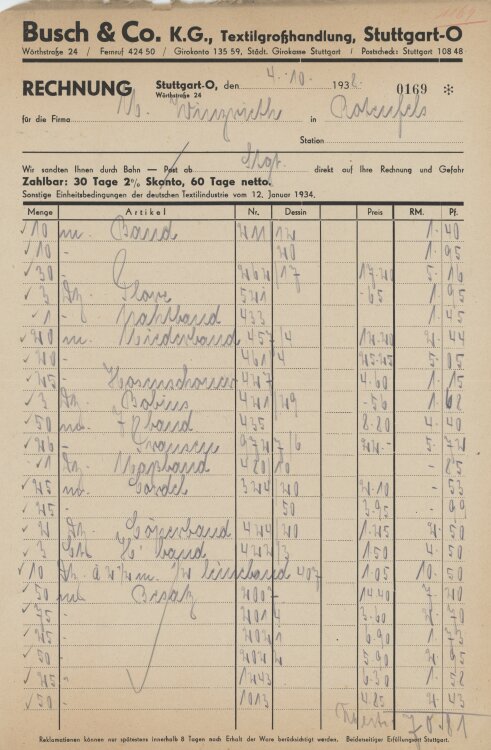 Busch & Co. K.G., Textilgroßhandlung, Stuttgart-O
Wörthstraße 24 / Fernruf 424 50 / Girokonto 135 59, Städt. Girokasse Stuttgart / Postscheck: Stuttgart 108 48
RECHNUNG Stuttgart-O, den 4. 10. 193 0169 *
Wörthstraße 24
für die Firma in Rotenfels
Station
Wir sandten Ihnen durch Bahn — Post ab Stgt. direkt auf Ihre Rechnung und Gefahr
Zahlbar: 30 Tage 2% Skonto, 60 Tage netto.
Sonstige Einheitsbedingungen der deutschen Textilindustrie vom 12. Januar 1934.
Menge Artikel Nr. Dessin Preis RM. Pf.
10 m. Band 211 12 1. 40
10 - 20 1. 95
30 - 262 17 17.20 5. 16
3 Dz. 521 -65 1. 95
1 - Nahtband 433 1. 45
20 m. 457 /4 12.20 2. 44
20 - 461 4 25.25 5. 05
25 Hosenschoner 427 4.60 1. 15
3 Dz. Bobins 421 /29 -56 1. 68
50 m. band 435 8.80 4. 40
26 - Fransen 972 7/6 22.- 5. 72
1 Dz. Maßband 480 10 - 85
25 m. Kordel 324 20 2.10 - 53
25 - 50 3.95 - 99
2 Dz. Köperband 424 20 1.25 2. 50
3 band 422 /3 1.50 4. 50
10 Dz. à 2½ m. leineband 407 1.05 10. 50
50 m. Besatz 2007 14.40 7. 20
75 - 201 4 3.60 2. 70
25 - 202 1 6.90 1. 73
50 - 202 2 5.90 2. 95
25 - 1243 6.30 1. 58
50 - 1013 4.85 2. 43
78.81
Reklamationen können nur spätestens innerhalb 8 Tagen nach Erhalt der Ware berücksichtigt werden. Beiderseitiger Erfüllungsort Stuttgart.